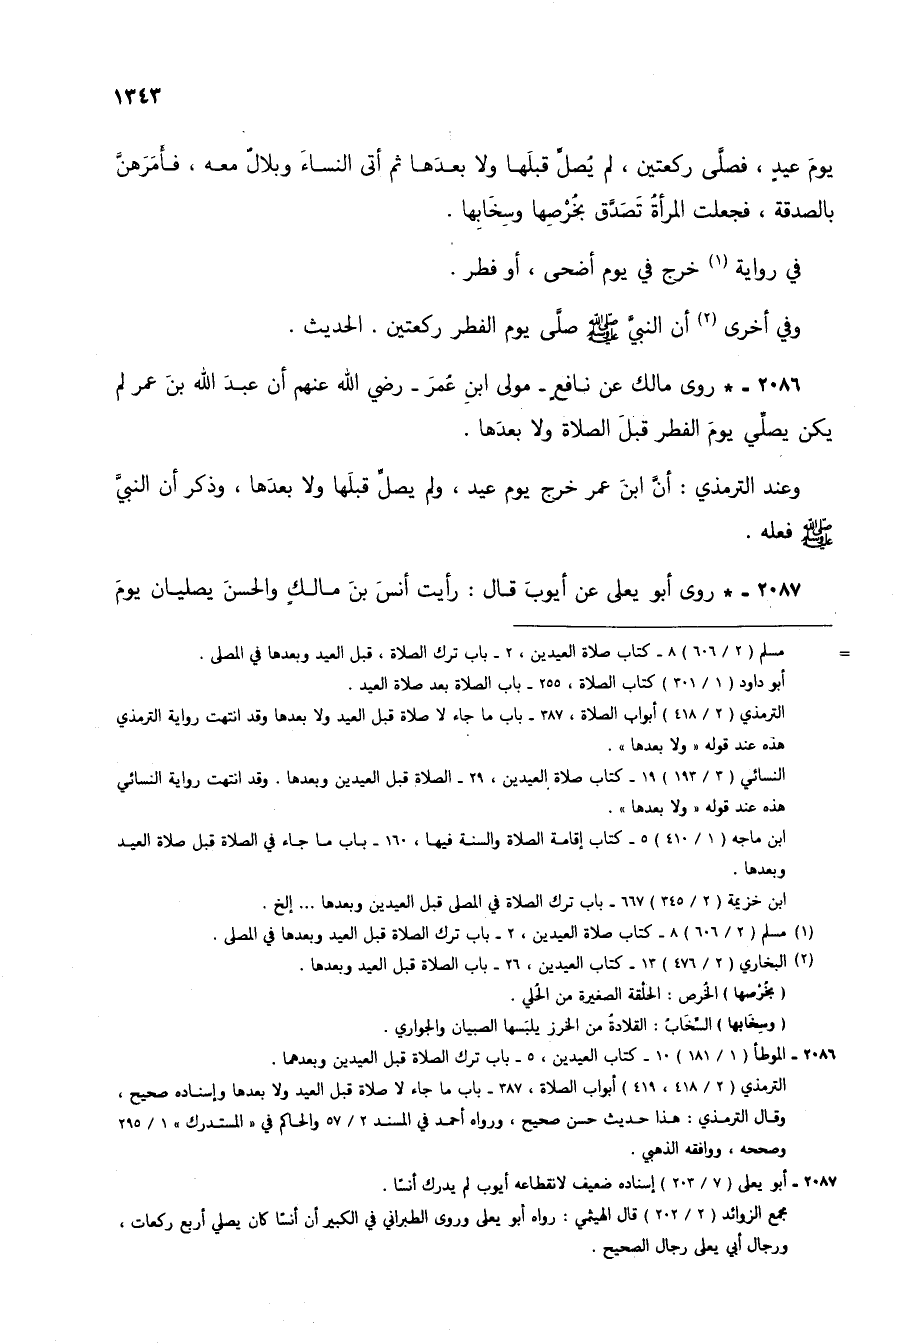 ١٣٤٣
يومَ عيدٍ ، فصلَّى ركعتين ، لم يُصلِّ قبلَها ولا بعدَها ثم أتى النساءَ وبلالٌ معه ، فأَمَرَهنَّ
بالصدقة ، فجعلت المرأةُ تَصَدَّق بخُرْصِها وسِخَابِها .
في رواية (١) خرج في يوم أضحى ، أو فطر .
وفي أخرى (٢) أن النبيَّ ﷺ صلَّى يوم الفطر ركعتين . الحديث .
٢٠٨٦ - * روى مالك عن نافعٍ - مولى ابنِ عُمرَ - رضي الله عنهم أن عبدَ الله بنَ عمر لم
يكن يصلِّي يومَ الفطر قبلَ الصلاة ولا بعدَها .
وعند الترمذي : أنَّ ابنَ عمر خرج يوم عيد ، ولم يصلِّ قبلَها ولا بعدَها ، وذكر أن النبيَّ
ﷺ فعله .
٢٠٨٧ - * روى أبو يعلى عن أيوبَ قال : رأيت أنسَ بنَ مالكٍ والحسنَ يصليان يومَ
= مسلم ( ٢ / ٦٠٦ ) ٨ - كتاب صلاة العيدين ، ٢ - باب ترك الصلاة ، قبل العيد وبعدها في المصلى .
أبو داود ( ١ / ٣٠١ ) كتاب الصلاة ، ٢٥٥ - باب الصلاة بعد صلاة العيد .
الترمذي ( ٢ / ٤١٨ ) أبواب الصلاة ، ٣٨٧ - باب ما جاء لا صلاة قبل العيد ولا بعدها وقد انتهت رواية الترمذي
هذه عند قوله « ولا بعدها » .
النسائي ( ٣ / ١٩٣ ) ١٩ - كتاب صلاة العيدين ، ٢٩ - الصلاة قبل العيدين وبعدها . وقد انتهت رواية النسائي
هذه عند قوله « ولا بعدها » .
ابن ماجه ( ١ / ٤١٠ ) ٥ - كتاب إقامة الصلاة والسنة فيها ، ١٦٠ - باب ما جاء في الصلاة قبل صلاة العيد
وبعدها .
ابن خزيمة ( ٢ / ٣٤٥ ) ٦٦٧ - باب ترك الصلاة في المصلى قبل العيدين وبعدها ... إلخ .
(١) مسلم ( ٢ / ٦٠٦ ) ٨ - كتاب صلاة العيدين ، ٢ - باب ترك الصلاة قبل العيد وبعدها في المصلى .
(٢) البخاري ( ٢ / ٤٧٦ ) ١٣ - كتاب العيدين ، ٢٦ - باب الصلاة قبل العيد وبعدها .
( بخُرْصها ) الخُرص : الحَلْقة الصغيرة من الحُلي .
( وسِخَابها ) السِّخَابُ : القلادةُ من الخرز يلبَسها الصبيان والجواري .
٢٠٨٦ - الموطأ ( ١ / ١٨١ ) ١٠ - كتاب العيدين ، ٥ - باب ترك الصلاة قبل العيدين وبعدهما .
الترمذي ( ٢ / ٤١٨ ، ٤١٩ ) أبواب الصلاة ، ٣٨٧ - باب ما جاء لا صلاة قبل العيد ولا بعدها وإسناده صحيح ،
وقال الترمذي : هذا حديث حسن صحيح ، ورواه أحمد في المسند ٢ / ٥٧ والحاكم في « المستدرك » ١ / ٢٩٥
وصححه ، ووافقه الذهبي .
٢٠٨٧ - أبو يعلى ( ٧ / ٢٠٣ ) إسناده ضعيف لانقطاعه أيوب لم يدرك أنسًا .
مجمع الزوائد ( ٢ / ٢٠٢ ) قال الهيثمي : رواه أبو يعلى وروى الطبراني في الكبير أن أنسًا كان يصلي أربع ركعات ،
ورجال أبي يعلى رجال الصحيح .